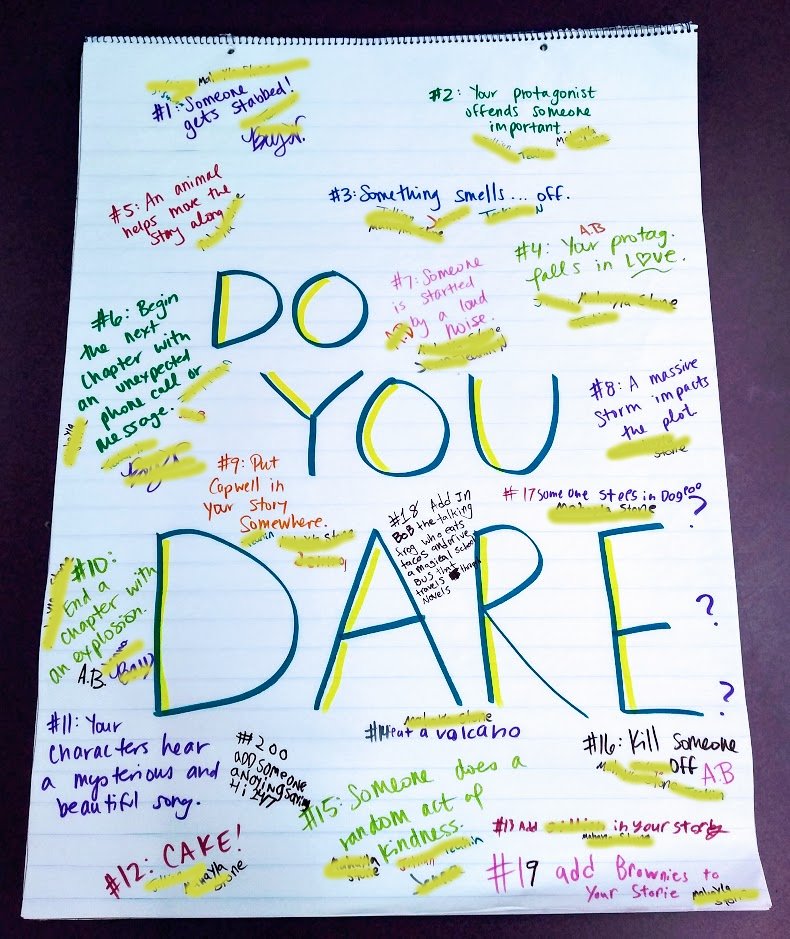 #1: Someone
gets stabbed!
#2: Your protagonist
offends someone
important...
#5: An animal
helps move the
story along
#3: Something smells... off.
A.B
#4: Your protag.
falls in LOVE.
#6: Begin
the next
chapter with
an unexpected
phone call or
message.
#7: Someone
is startled
by a loud
noise.
DO
YOU
DARE
???
#8: A massive
storm impacts
the plot
Stone
#9: Put
Capwell in
your story
somewhere.
#18 Add In
BOB the talking
frog who eats
tacos and drive
a magical school
Bus that
travels through
Novels
#17 Some one steps in Dogpoo
#10:
End a
chapter with
an explosion.
A.B.
#11: Your
characters hear
a mysterious and
beautiful song.
#200
ADD someone
anoying saying
Hi 24/7
#14 eat a volcano
#15: Someone does a
random act of
kindness.
#16: Kill Someone
off AB
#12: CAKE!
Stone
#13 Add in your story
#19 add Brownies to
Your Storie